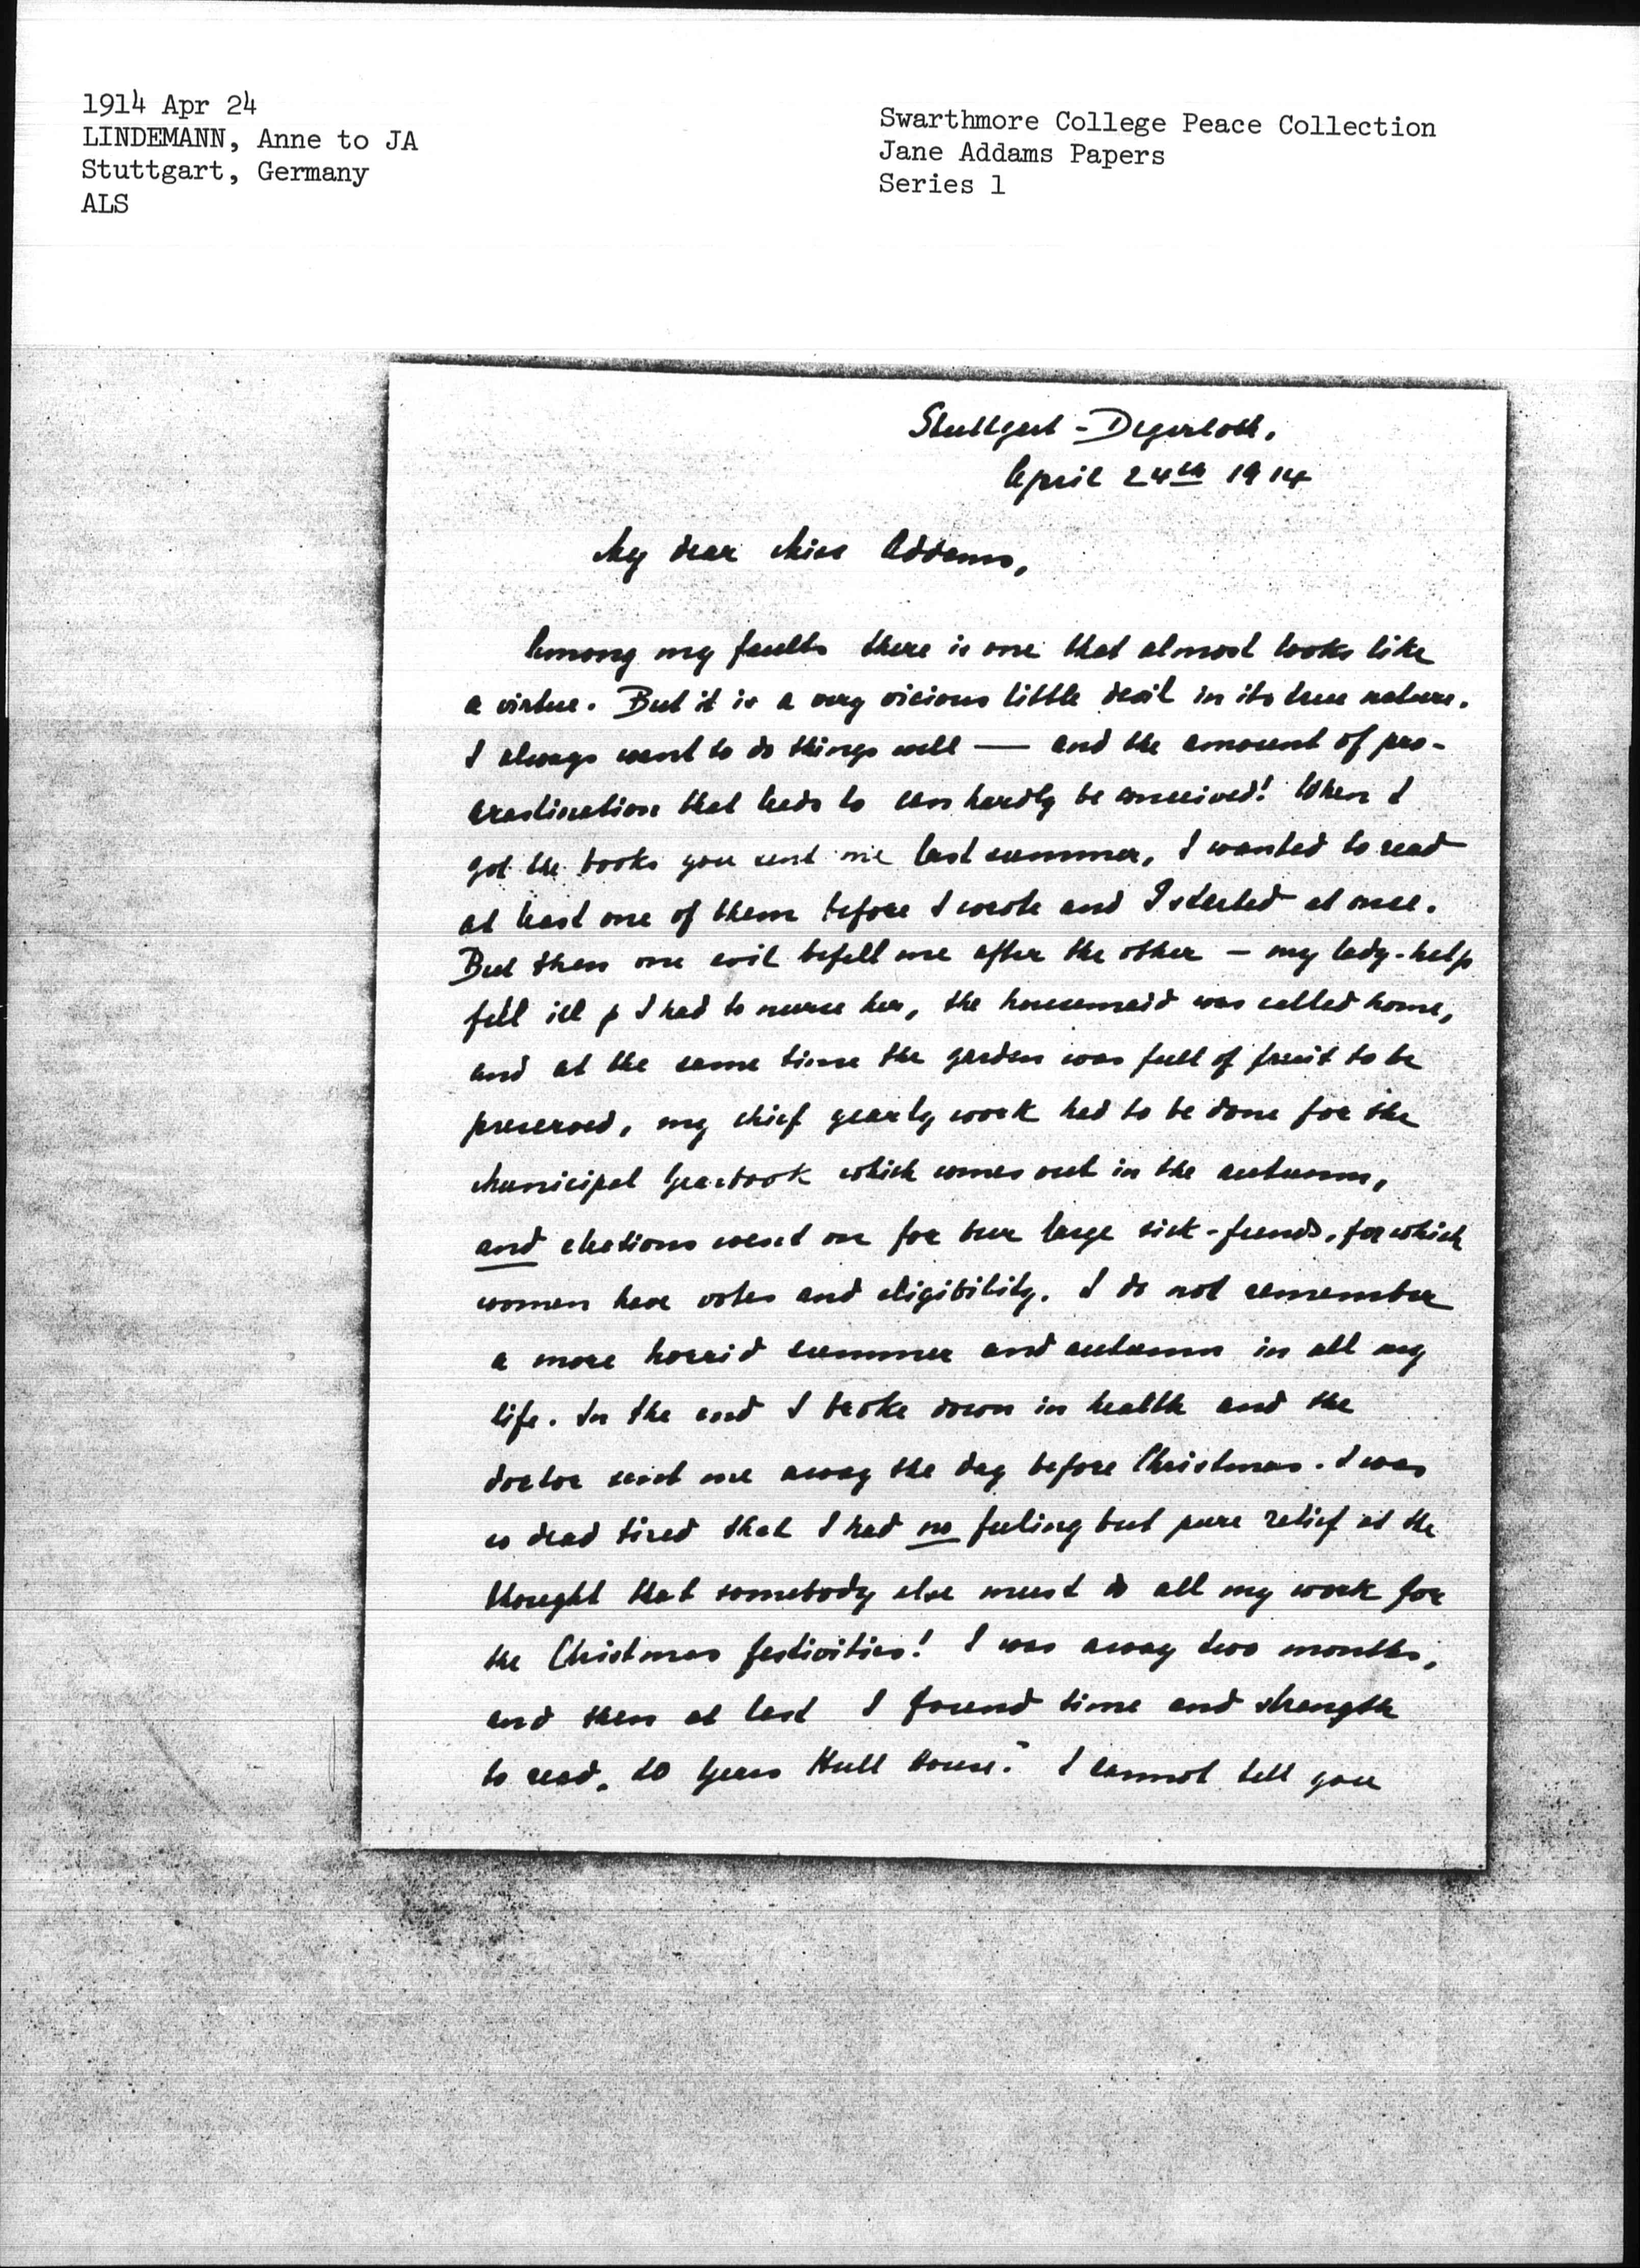 1914 Apr 24
LINDEMANN, Anne to JA
Stuttgart, Germany
ALS
Swarthmore College Peace Collection
Jane Addams Papers
Series 1
Stuttgart - Degerloch.
April 24th 1914
My dear Miss Addams,
Among my faults there is one that almost looks like
a virtue. But it is a very vicious little devil in its true nature.
I always want to do things well — and the amount of pro-
crastination that leads to can hardly be conceived! When I
got the books you sent me last summer, I wanted to read
at least one of them before I wrote and I started at once.
But then one evil befell me after the other – my lady-help
fell ill & I had to nurse her, the housemaid was called home,
and at the same time the garden was full of fruit to be
preserved, my chief yearly work had to be done for the
Municipal Yearbook which comes out in the autumn,
and elections went on for our large sick-funds, for which
women have votes and eligibility. I do not remember
a more horrid summer and autumn in all my
life. In the end I broke down in health and the
doctor sent me away the day before Christmas. I was
so dead tired that I had no feeling but pure relief at the
thought that somebody else must do all my work for
the Christmas festivities! I was away two months,
and then at last I found time and strength
to read „20 Years Hull House." I cannot tell you